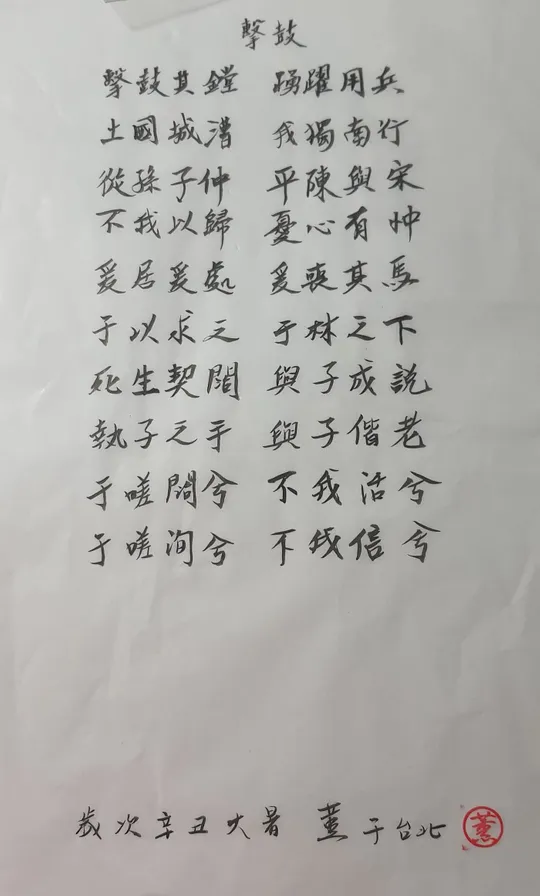 擊鼓
擊鼓其鏜 踴躍用兵
土國城漕 我獨南行
從孫子仲 平陳與宋
不我以歸 憂心有忡
爰居爰處 爰喪其馬
于以求之 于林之下
死生契闊 與子成說
執子之手 與子偕老
于嗟闊兮 不我活兮
于嗟洵兮 不我信兮
歲次辛丑大暑 薰于台北
薰